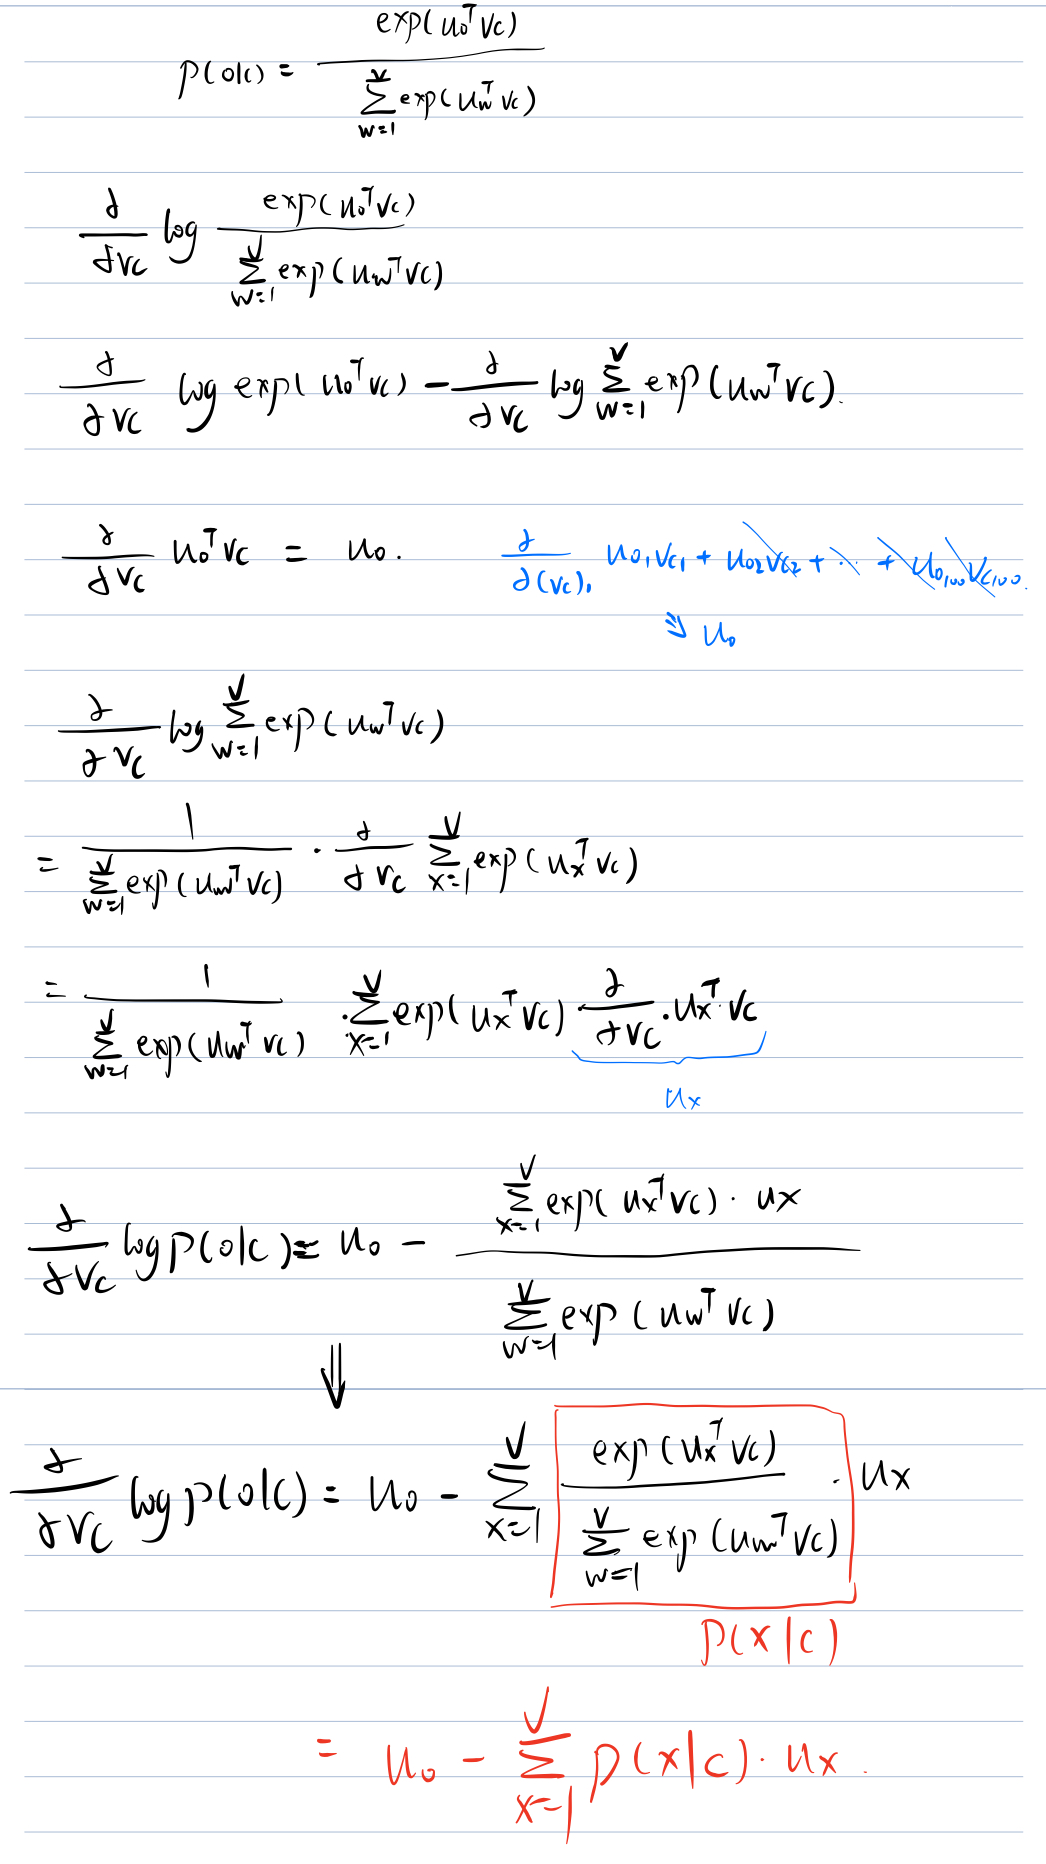 p(o|c) = exp(u₀ᵀ v_c) / ∑_{w=1}^{V} exp(u_wᵀ v_c)
∂/∂v_c log exp(u₀ᵀ v_c) / ∑_{w=1}^{V} exp(u_wᵀ v_c)
∂/∂v_c log exp(u₀ᵀ v_c) − ∂/∂v_c log ∑_{w=1}^{V} exp(u_wᵀ v_c).
∂/∂v_c u₀ᵀ v_c = u₀. ∂/∂(v_c)₁ u₀₁v_c₁ + u₀₂v_c₂ + ... + u₀,₁₀₀v_c,₁₀₀.
⇒ u₀
∂/∂v_c log ∑_{w=1}^{V} exp(u_wᵀ v_c)
= 1 / ∑_{w=1}^{V} exp(u_wᵀ v_c) · ∂/∂v_c ∑_{x=1}^{V} exp(u_xᵀ v_c)
= 1 / ∑_{w=1}^{V} exp(u_wᵀ v_c) · ∑_{x=1}^{V} exp(u_xᵀ v_c) · ∂/∂v_c · u_xᵀ · v_c
u_x
∂/∂v_c log p(o|c) = u₀ − ∑_{x=1}^{V} exp(u_xᵀ v_c) · u_x / ∑_{w=1}^{V} exp(u_wᵀ v_c)
⇓
∂/∂v_c log p(o|c) = u₀ − ∑_{x=1}^{V} exp(u_xᵀ v_c) / ∑_{w=1}^{V} exp(u_wᵀ v_c) · u_x
p(x|c)
= u₀ − ∑_{x=1}^{V} p(x|c) · u_x.